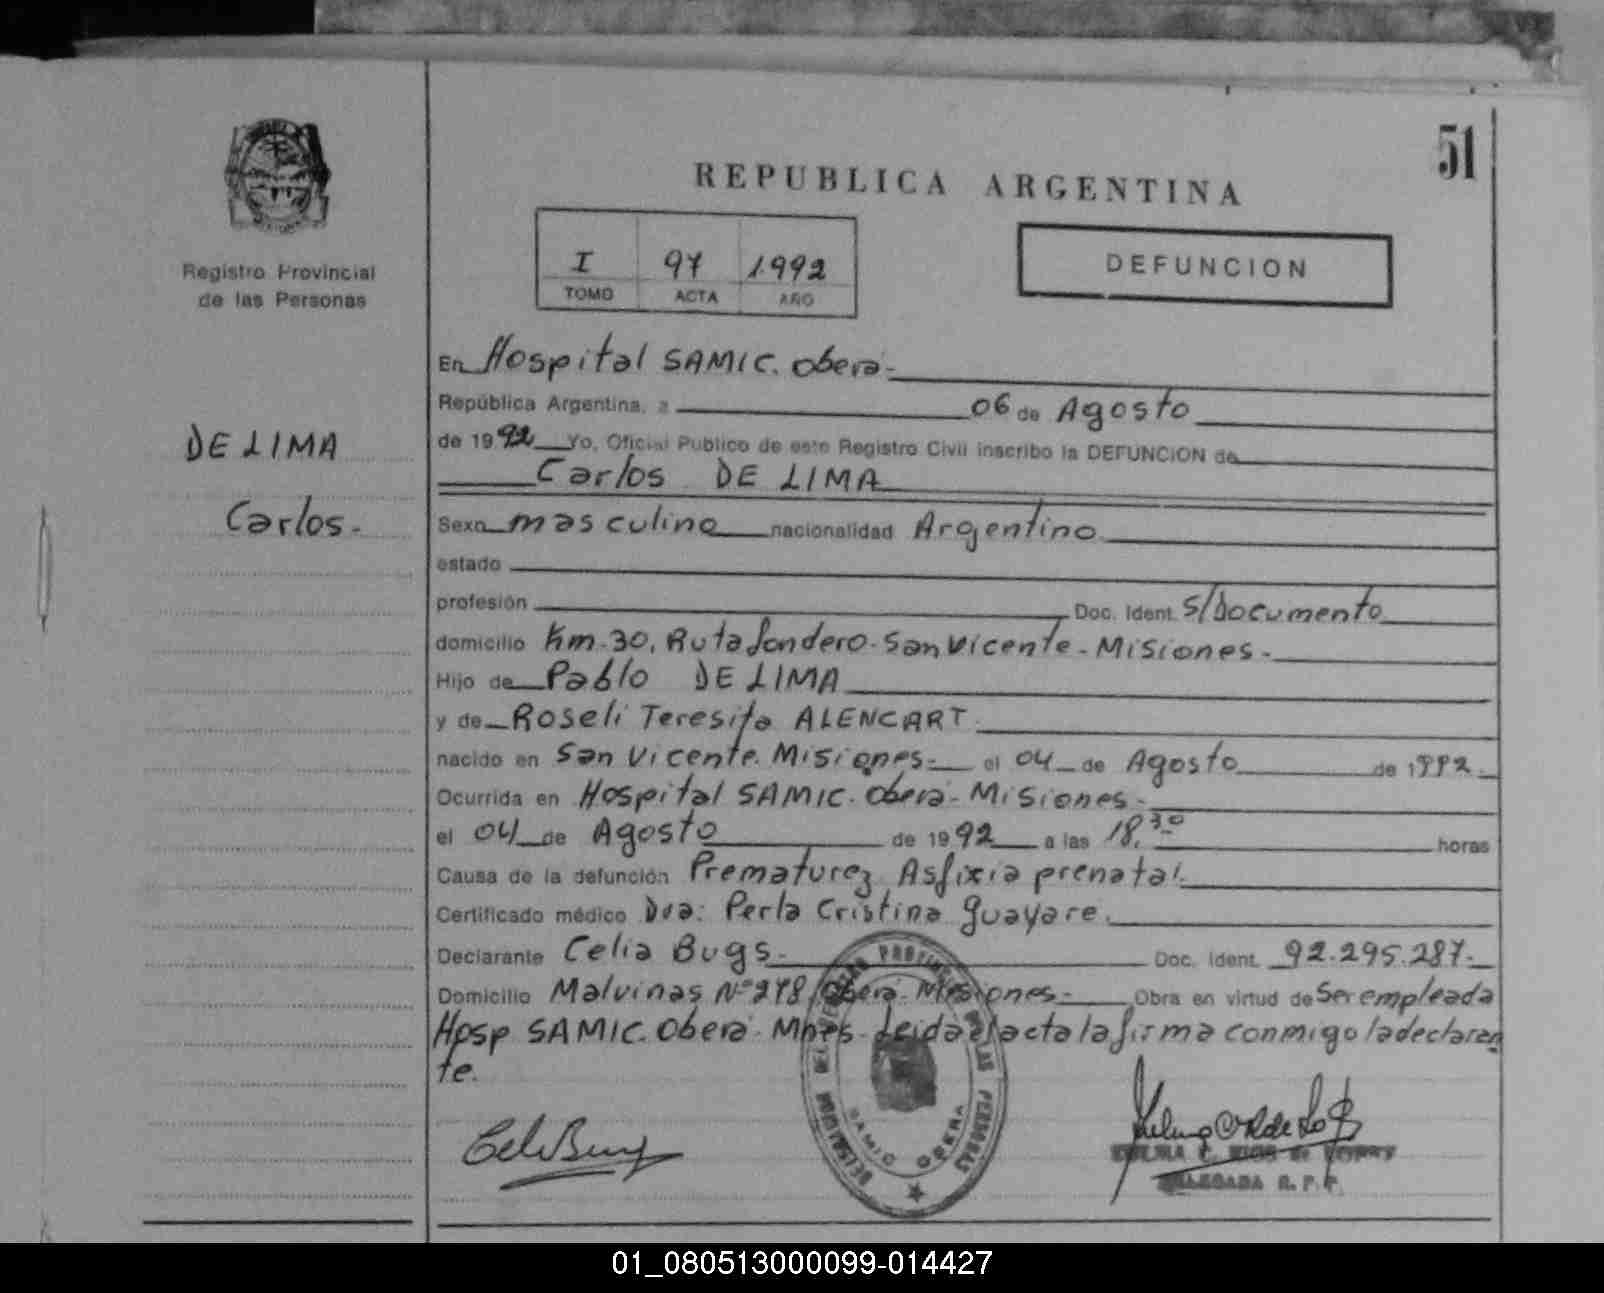 51
REPUBLICA ARGENTINA
Registro Provincial
de las Personas
I 97 1992
TOMO ACTA AÑO
DEFUNCION
DE LIMA
Carlos.-
En Hospital SAMIC. Oberá.-
República Argentina, a 06 de Agosto
de 1992 Yo, Oficial Público de este Registro Civil inscribo la DEFUNCION de
Carlos DE LIMA
Sexo masculino nacionalidad Argentino
estado
profesión Doc. Ident. S/Documento
domicilio Km-30, Ruta Londero-San Vicente-Misiones-
Hijo de Pablo DE LIMA
y de Roseli Teresita ALENCART.
nacido en San Vicente. Misiones- el 04 de Agosto de 1992-
Ocurrida en Hospital SAMIC. Oberá-Misiones-
el 04 de Agosto de 1992 a las 18,30 horas
Causa de la defunción Prematurez Asfixia prenatal.
Certificado médico Dra: Perla Cristina Guayare.
Declarante Celia Bugs.- Doc. Ident. 92.295.287-
Domicilio Malvinas Nº 278, Oberá-Misiones- Obra en virtud de Ser empleada
Hosp SAMIC. Oberá-Mnes-Leida el acta la firma conmigo la declaran
te.
REGISTRO PROVINCIAL DE LAS PERSONAS
SAMIC OBERA
DELEGADA R. P. P.
01_080513000099-014427